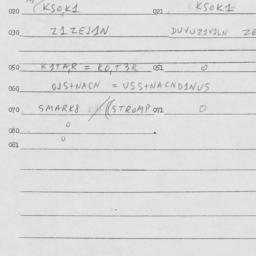 020 (KSO,K1 021 KSOK1
030 Z1ZEJ1N DUVUZ1V1LN ZE
050 K1TA,R = KO,T3R 051 0
060 OJS+NACN = USS+NACND1NUS
070 SMARK8 /((STROMP 072 0
080 0
081 0